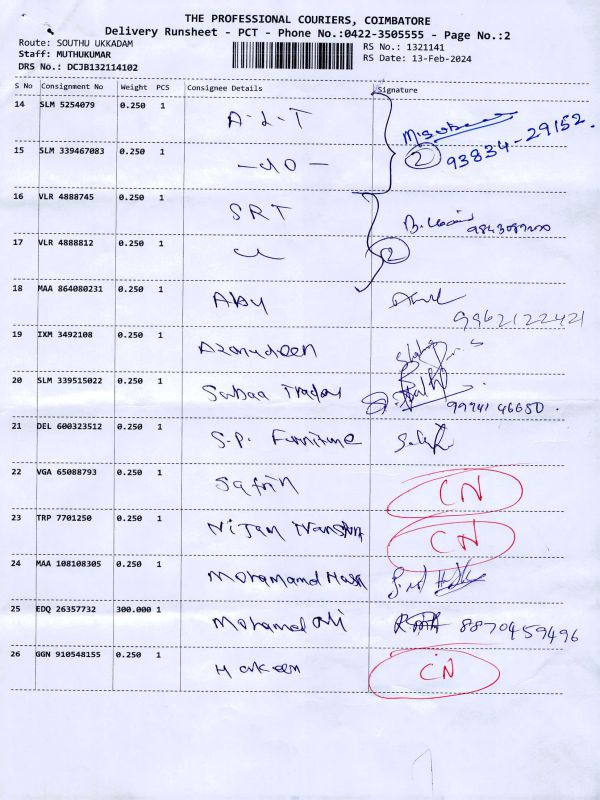 THE PROFESSIONAL COURIERS, COIMBATORE
Delivery Runsheet - PCT - Phone No.:0422-3505555 - Page No.:2
Route: SOUTHU UKKADAM
RS No.: 1321141
Staff: MUTHUKUMAR
RS Date: 13-Feb-2024
DRS No.: DCJB132114102
S No Consignment No Weight PCS Consignee Details Signature
14 SLM 5254079 0.250 1 A-L-T
② 93834-29152.
15 SLM 339467083 0.250 1 -do-
16 VLR 4888745 0.250 1 SRT
17 VLR 4888812 0.250 1 ②
18 MAA 864080231 0.250 1 9962122421
19 IXM 3492108 0.250 1 Azarudeen
20 SLM 339515022 0.250 1 99941 46650.
21 DEL 600323512 0.250 1 S.P. Furniture
22 VGA 65088793 0.250 1 Safrin CN
23 TRP 7701250 0.250 1 Nijam CN
24 MAA 108108305 0.250 1
25 EDQ 26357732 300.000 1 Mohamed Ali 8870459496
26 GGN 910548155 0.250 1 CN